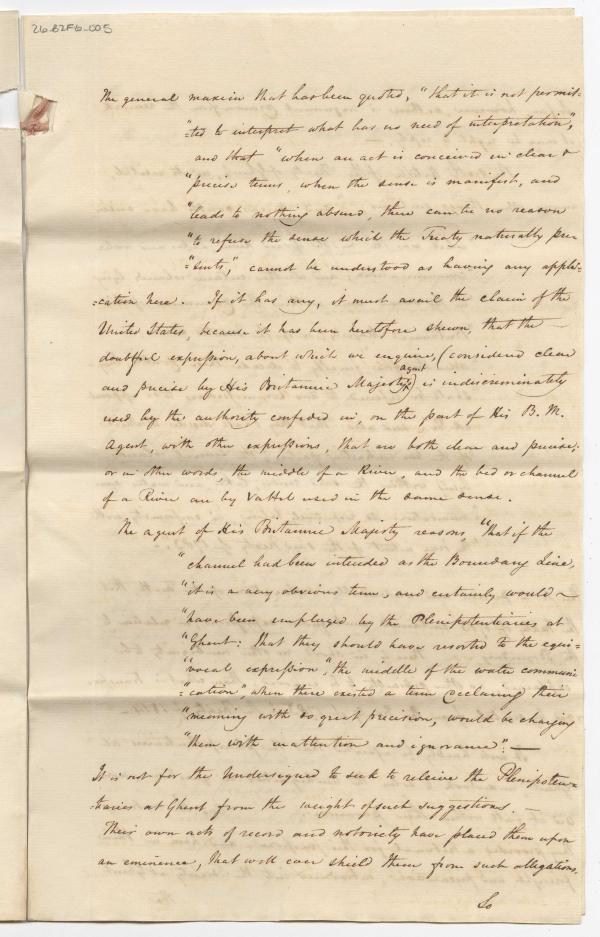 26-B2F6-005
The general maxim that has been quoted, "that it is not permit-
"ted to interpret what has no need of interpretation",
and that "when an act is conceived in clear &
"precise terms, when the sense is manifest, and
"leads to nothing absurd, there can be no reason
"to refuse the sense which the Treaty naturally pre
"sents", cannot be understood as having any appli-
-cation here. If it has any, it must avail the claim of the
United States, because it has been heretofore shewn, that the —
doubtful expression, about which we enquire, (considered clear
and precise by His Britannic Majesty's agent) is indiscriminately
used by the authority confided in, on the part of His B. M.
Agent, with other expressions, that are both clear and precise;
or in other words, the middle of a River, and the bed or channel
of a River are by Vattel used in the same sense.
The agent of His Britannic Majesty reasons, "that if the
"channel had been intended as the Boundary Line,
"it is a very obvious term, and certainly would —
"have been employed by the Plenipotentiaries at
"Ghent: That they should have resorted to the equi-
"vocal expression", the middle of the water communi
"cation", when there existed a term declaring their
"meaning with so great precision, would be charging
"them with inattention and ignorance". —
It is not for the Undersigned to seek to relieve the Plenipoten-
-tiaries at Ghent from the weight of such suggestions. —
Their own acts of record and notoriety have placed them upon
an eminence, that will ever shield them from such allegations.
So